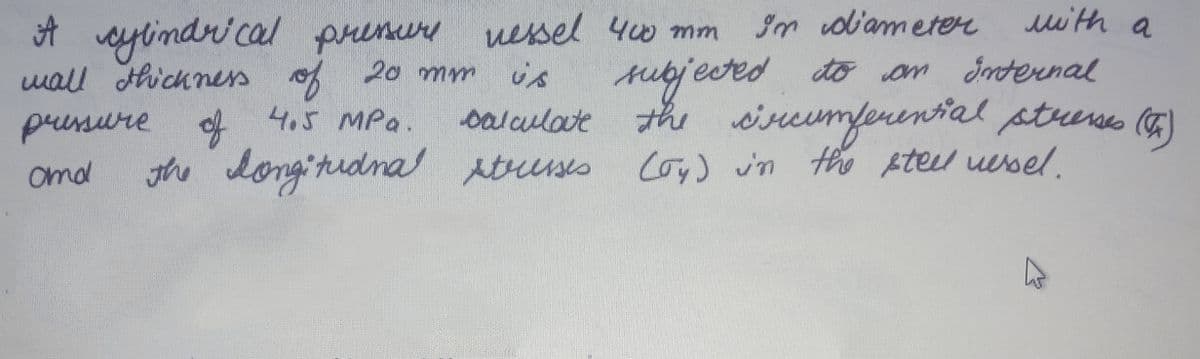 A cylindrical pressure vessel 400 mm in diameter with a
wall thickness of 20 mm is subjected to an internal
pressure of 4.5 MPa. calculate the circumferential stresses (σx)
and the longitudnal stresses (σy) in the steel vessel.